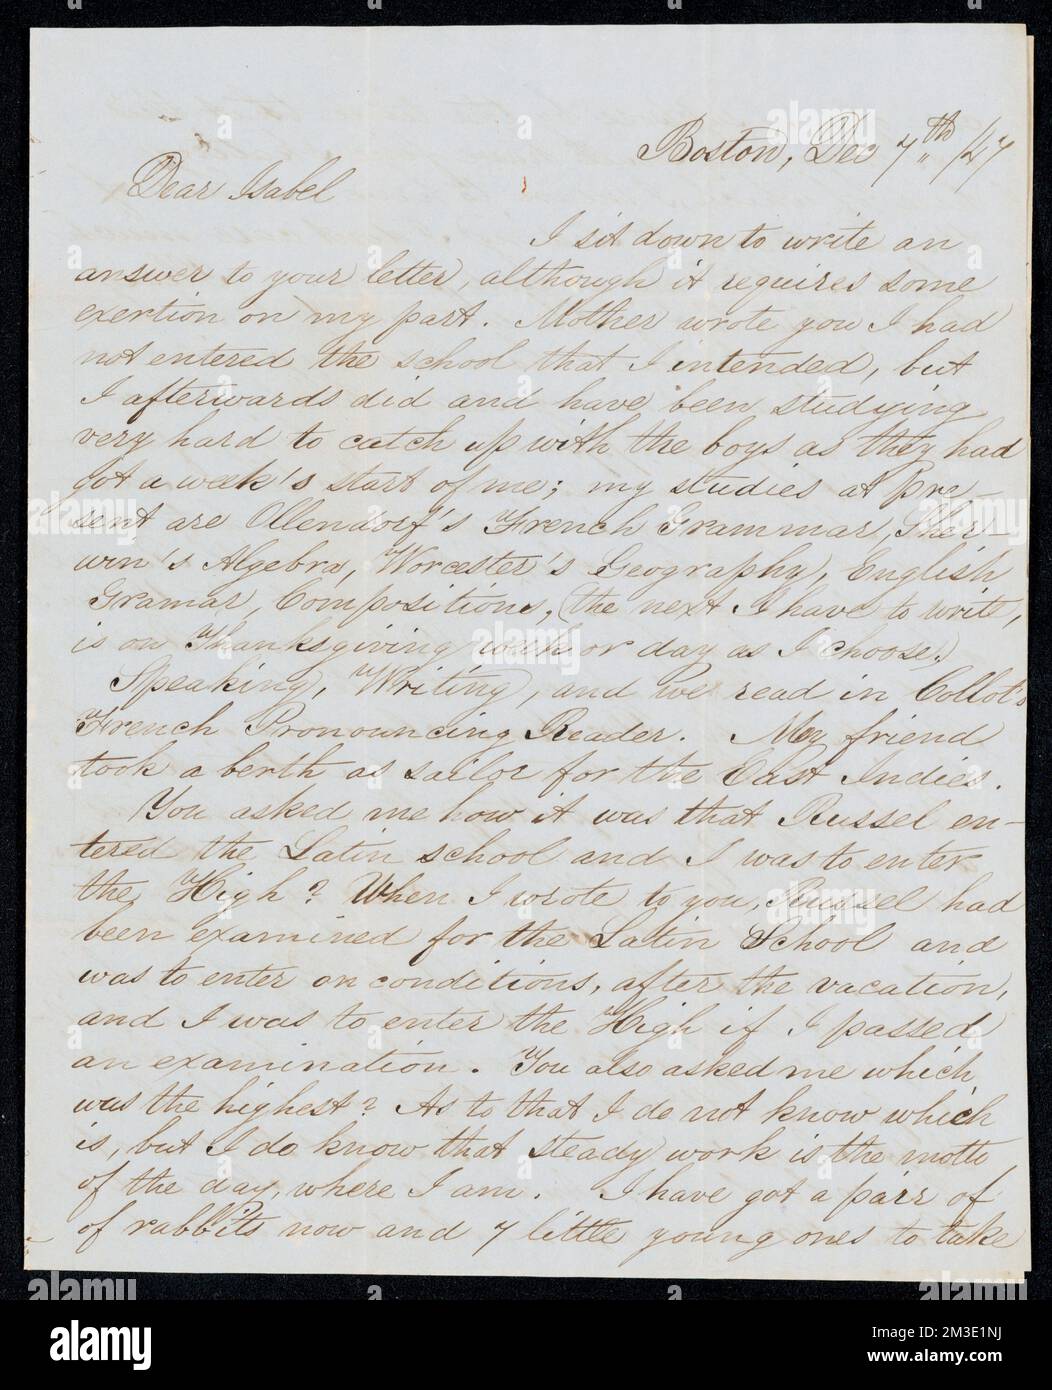 Boston, Dec 7th /47
Dear Isabel
I sit down to write an
answer to your letter, although it requires some
exertion on my part. Mother wrote you I had
not entered the school that I intended, but
I afterwards did and have been studying
very hard to catch up with the boys as they had
got a week's start of me; my studies at pre-
sent are Ollendorf's French Grammar, Sher-
win's Algebra, Worcester's Geography, English
Gramar, Compositions, (the next I have to write,
is on Thanksgiving week or day as I choose.)
Speaking, Writing, and we read in Collot's
French Pronouncing Reader. My friend
took a berth as sailor for the East Indies.
You asked me how it was that Russel en-
tered the Latin school and I was to enter
the High? When I wrote to you, Russel had
been examined for the Latin School and
was to enter on conditions, after the vacation,
and I was to enter the High if I passed
an examination. You also asked me which
was the highest? As to that I do not know which
is, but I do know that steady work is the motto
of the day, where I am. I have got a pair of
of rabbits now and 7 little young ones to take
alamy
alamy
Image ID: 2M3E1NJ
www.alamy.com